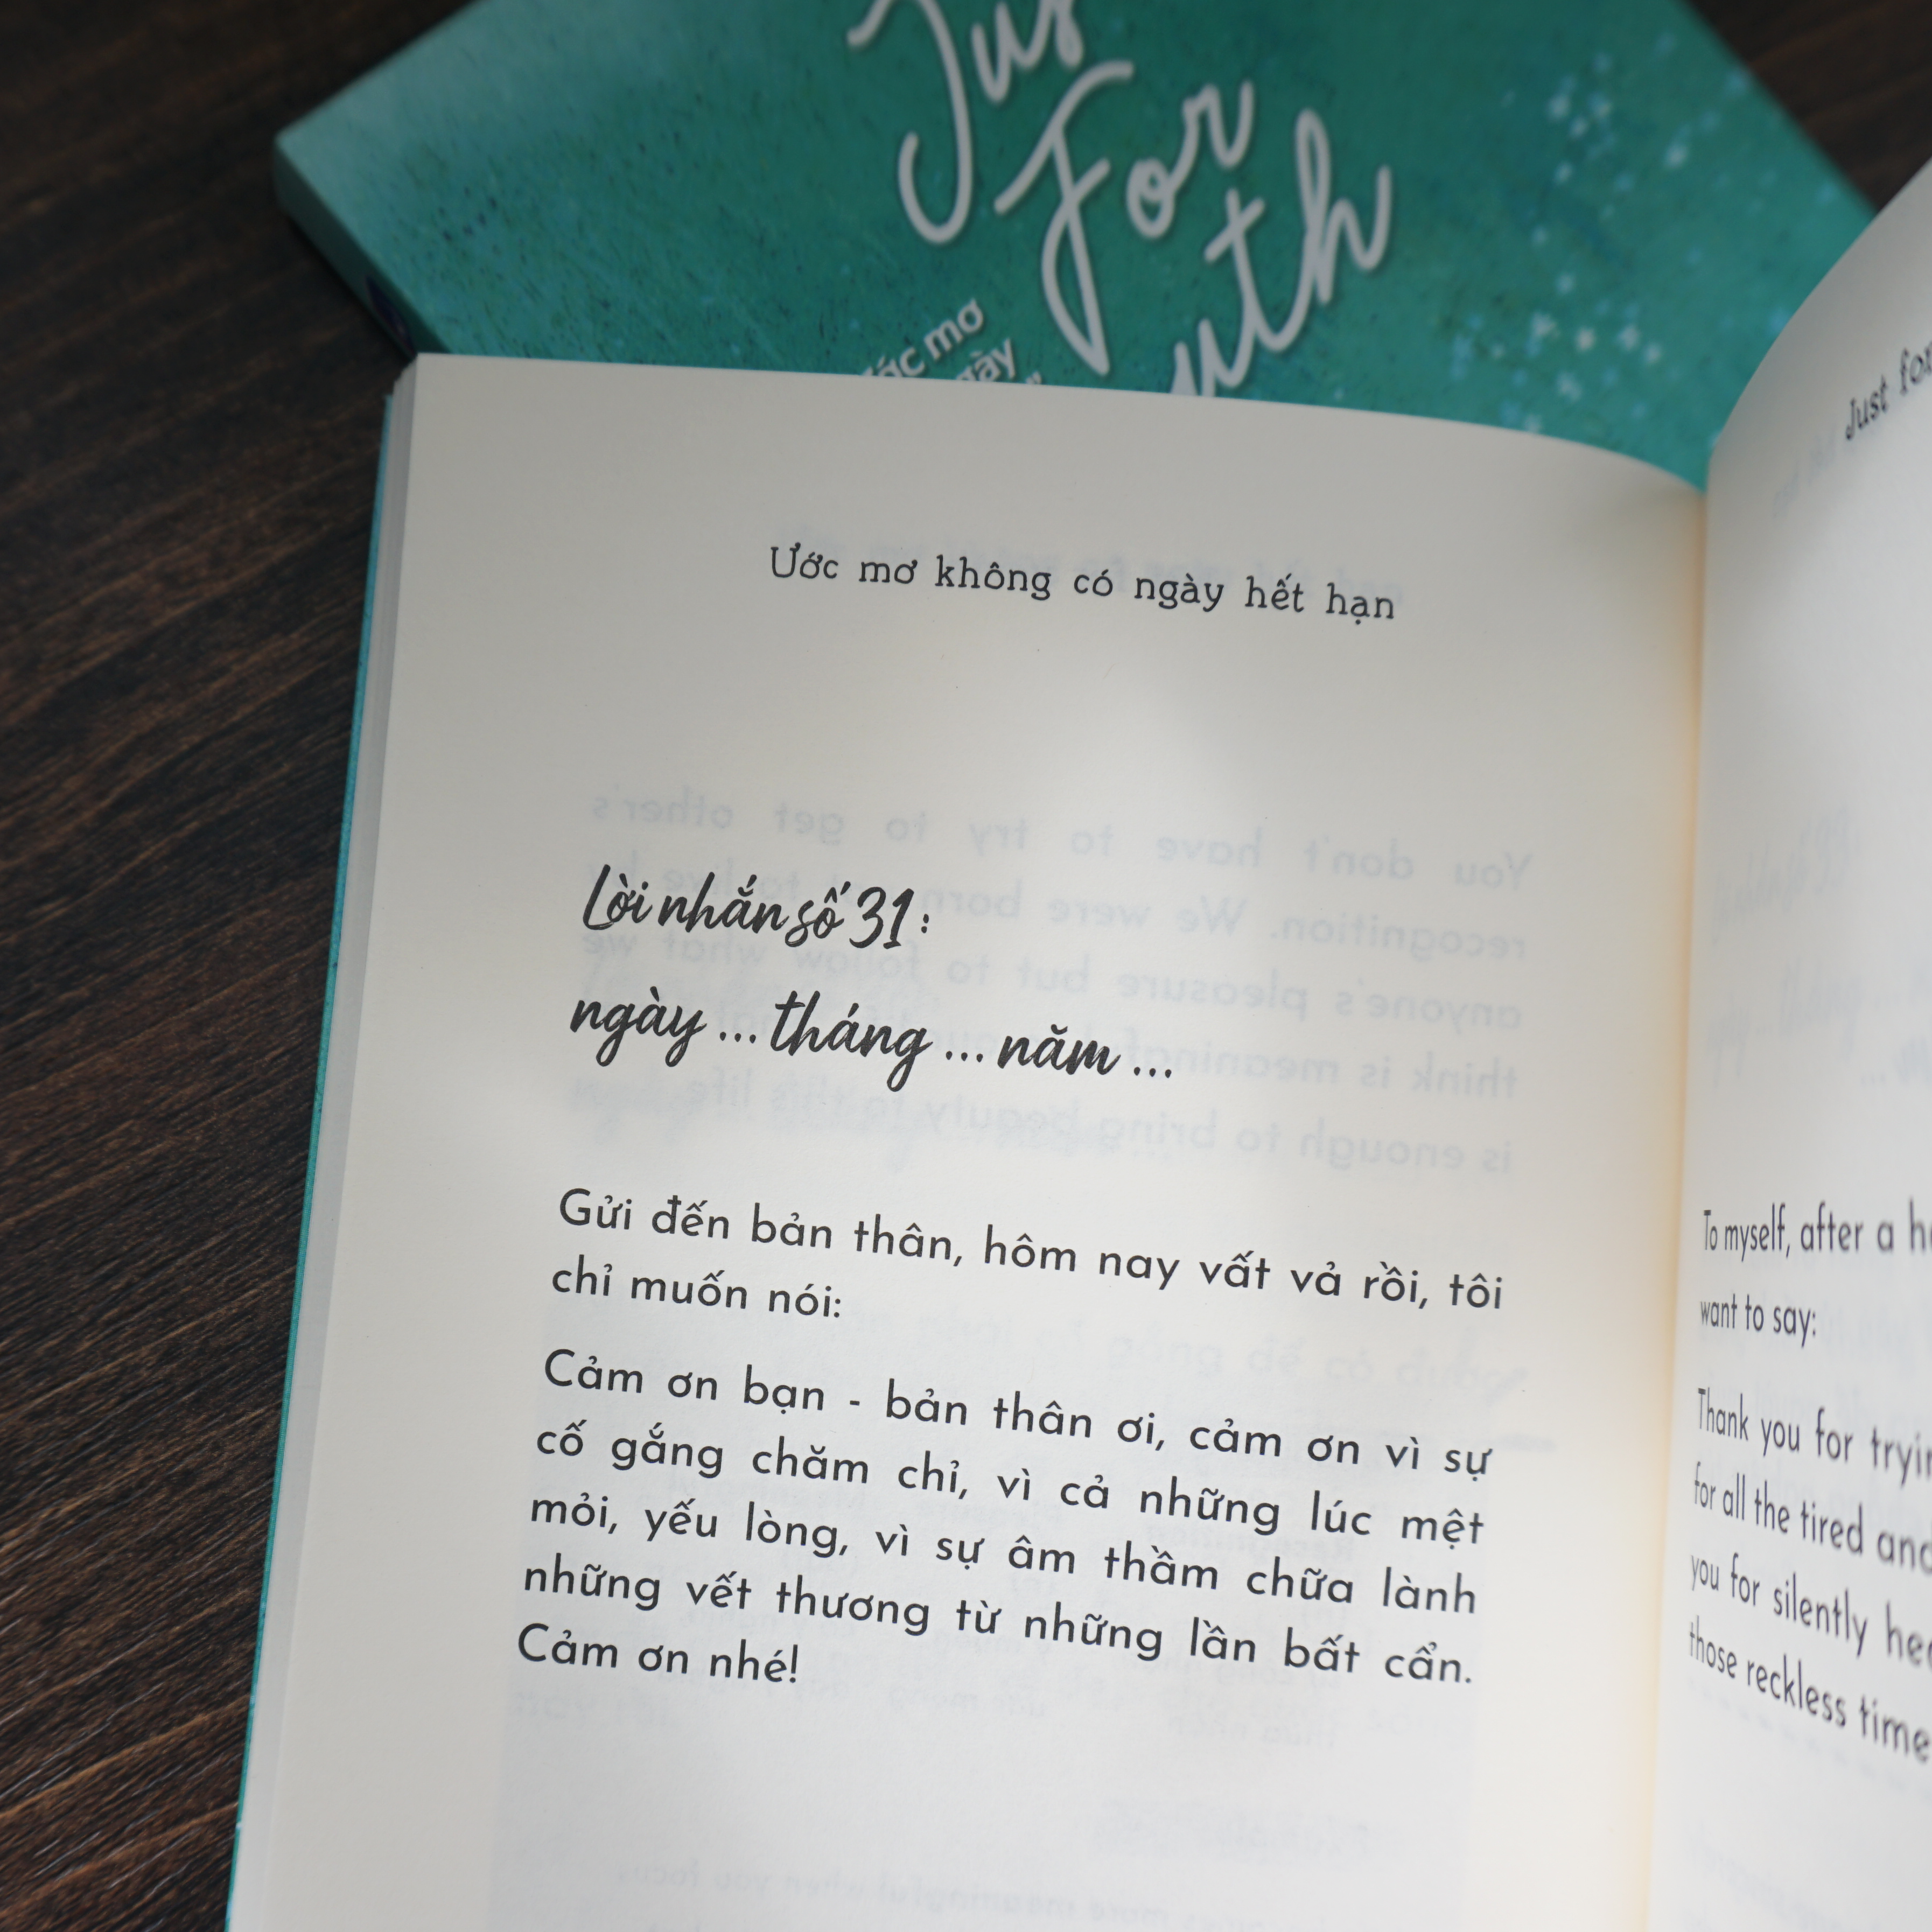 Just
For
uth
mơ
Ước mơ không có ngày hết hạn
Lời nhắn số 31:
ngày ... tháng ... năm ...
Gửi đến bản thân, hôm nay vất vả rồi, tôi
chỉ muốn nói:
Cảm ơn bạn - bản thân ơi, cảm ơn vì sự
cố gắng chăm chỉ, vì cả những lúc mệt
mỏi, yếu lòng, vì sự âm thầm chữa lành
những vết thương từ những lần bất cẩn.
Cảm ơn nhé!
Just for
To myself, after a
want to say:
Thank you for
for all the tired and
you for silently
those reckless